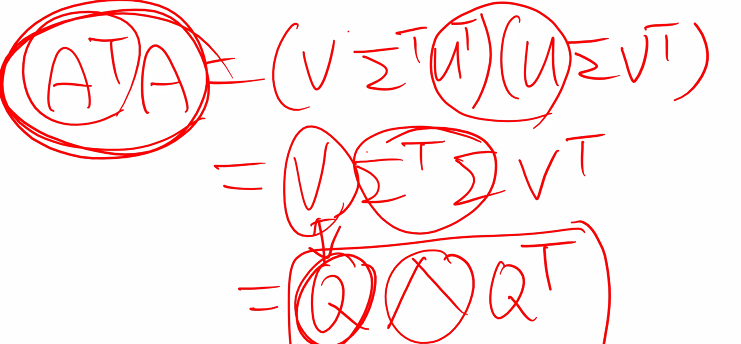 AᵀA = (VΣᵀUᵀ)(UΣVᵀ)
= VΣᵀΣVᵀ
= QΛQᵀ